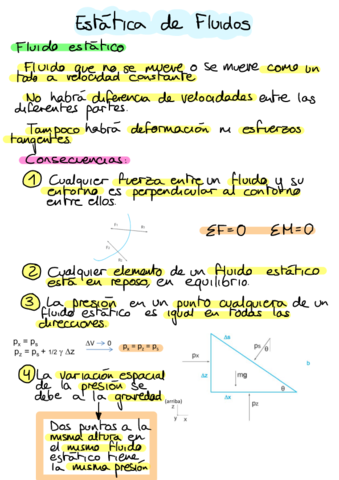 Estática de Fluidos
Fluido estático
Fluido que no se mueve o se mueve como un
todo a velocidad constante
No habrá diferencia de velocidades entre las
diferentes partes.
Tampoco habrá deformación ni esfuerzos
tangentes.
Consecuencias:
1 Cualquier fuerza entre un fluido y su
entorno es perpendicular al contorno
entre ellos.
ΣF=0 ΣM=0
2 Cualquier elemento de un fluido estático
está en reposo, en equilibrio.
3 La presión en un punto cualquiera de un
fluido estático es igual en todas las
direcciones.
px = ps
pz = ps + 1/2 γ Δz
ΔV → 0
px = pz = ps
Δs
ps
px
Δz
mg
b
θ
Δx
pz
4 La variación espacial
de la presión se
debe a la gravedad
(arriba)
z
y x
Dos puntos a la
misma altura en
el mismo fluido
estático tiene
la misma presión